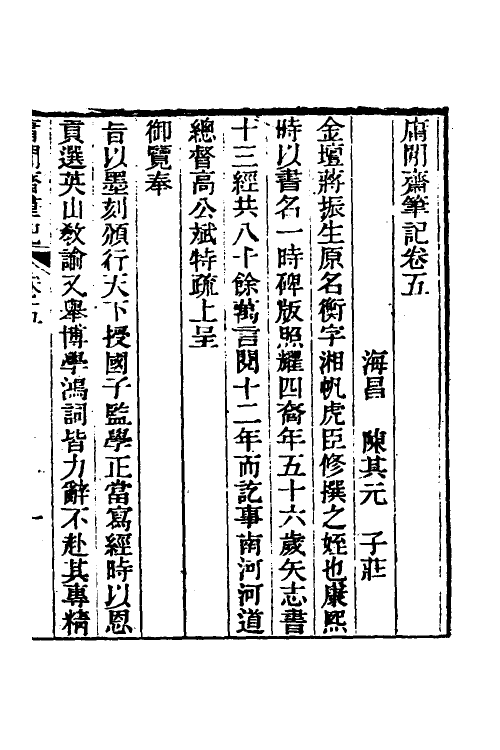 庸閒齋筆記卷五
海昌　陳其元　子莊
金壇蔣振生原名衡字湘帆虎臣修撰之姪也康熙
時以書名一時碑版照耀四裔年五十六歲矢志書
十三經共八十餘萬言閱十二年而訖事南河河道
總督高公斌特疏上呈
御覽奉
旨以墨刻頒行天下授國子監學正當寫經時以恩
貢選英山教諭又舉博學鴻詞皆力辭不赴其專精
庸閒齋筆記　卷五　一